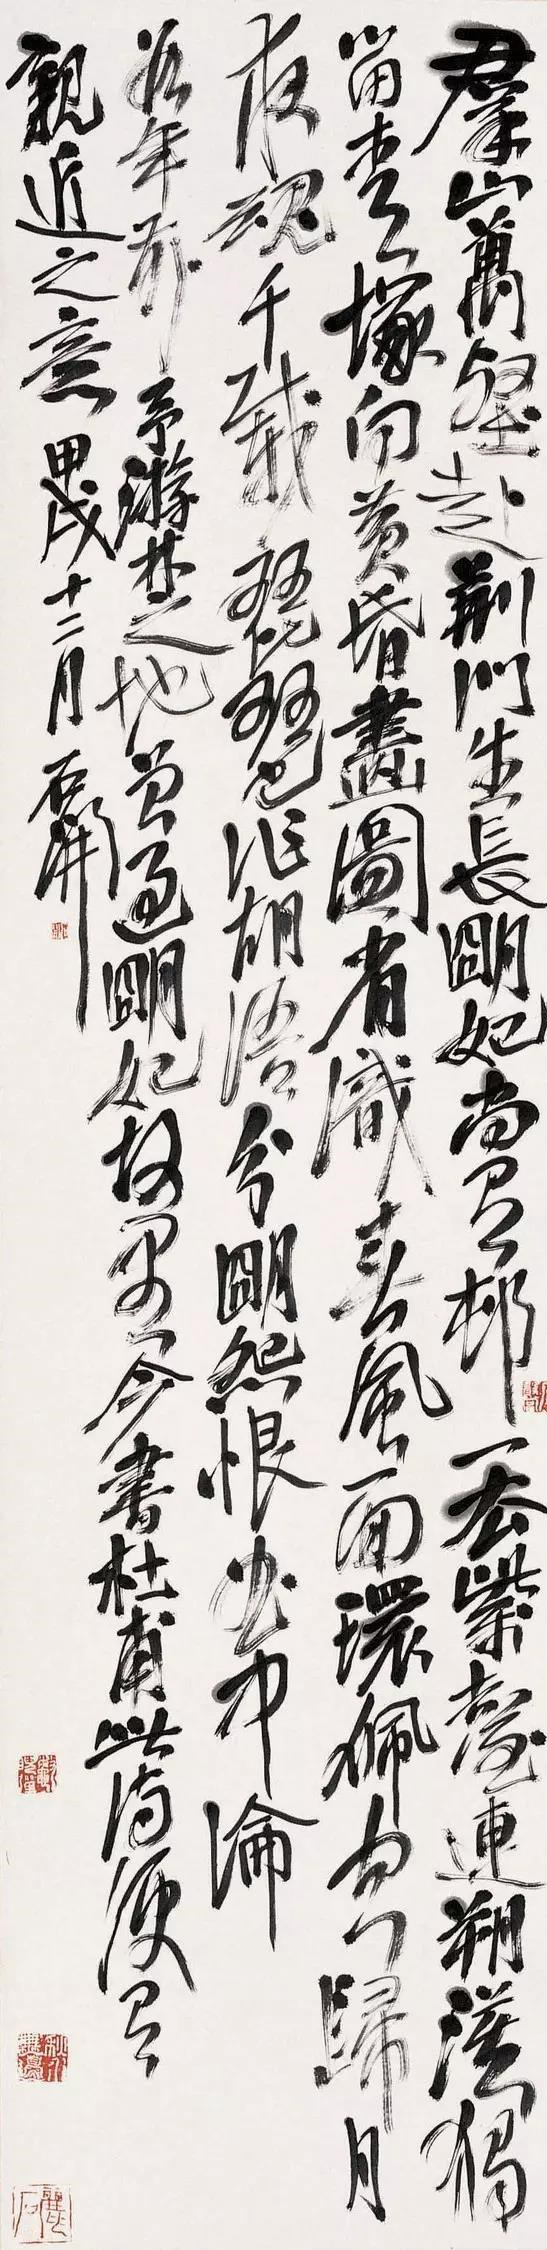 群山萬壑赴荆門生長朙妃尚有邨一去紫臺連朔漠獨
留青塚向黄昏畫圖省識春風面環佩空歸月
夜魂千載琵琶作胡語分朙怨恨曲中論
年前予游楚之地曾過朙妃故里今書杜甫此詩便有
親近之意甲戌十二月石開